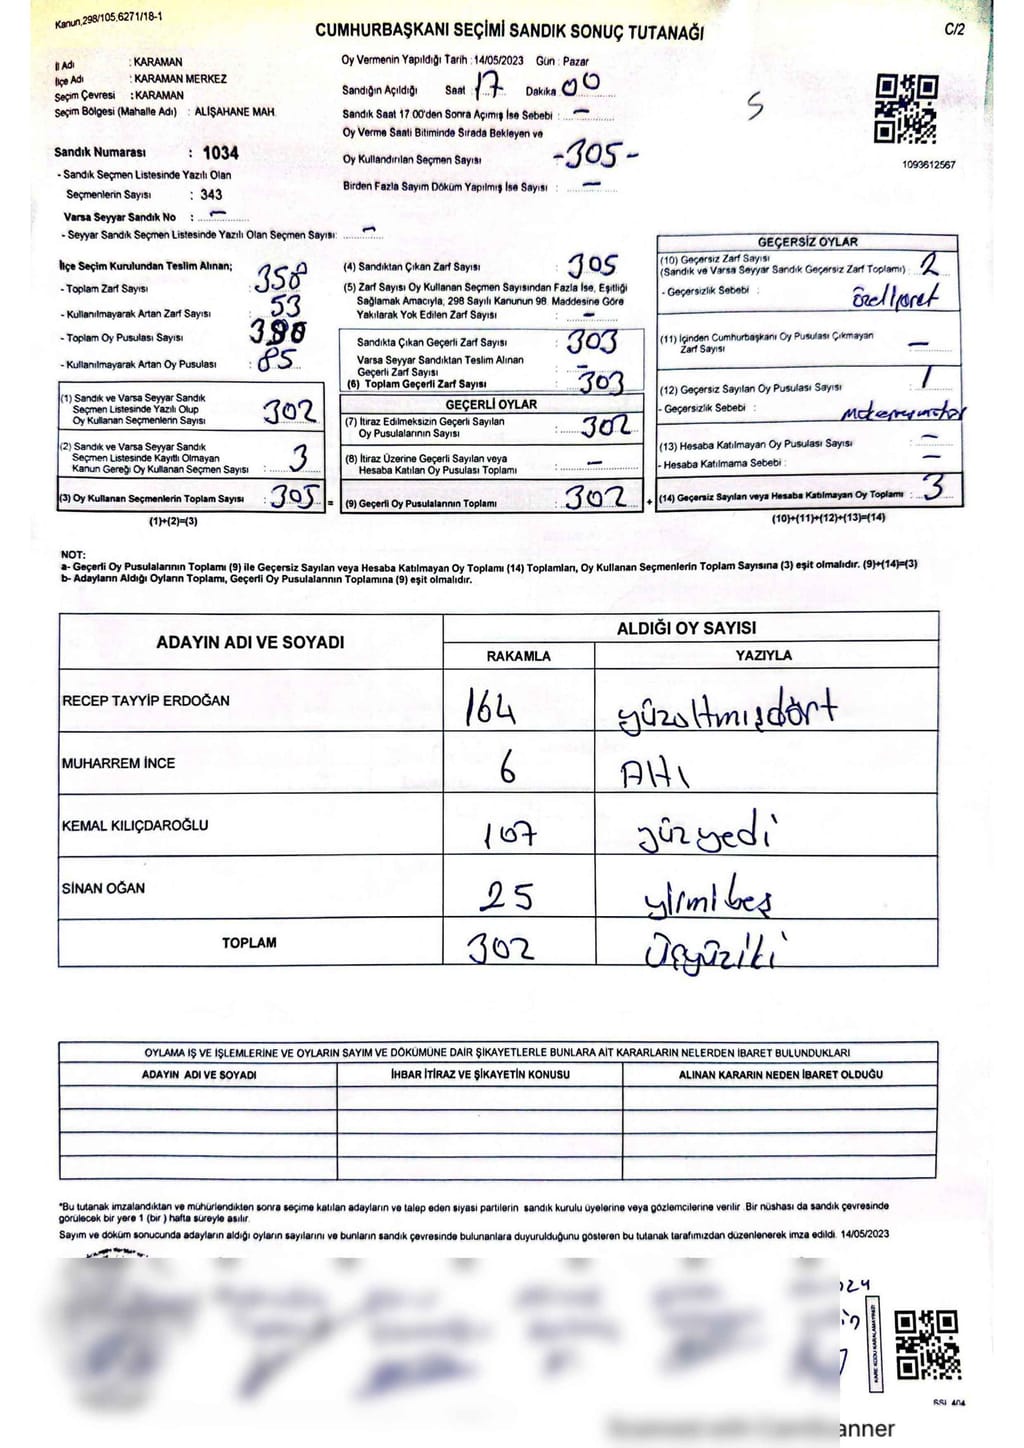 Kanun,298/105,6271/18-1
CUMHURBAŞKANI SEÇİMİ SANDIK SONUÇ TUTANAĞI
C/2
İl Adı : KARAMAN
İlçe Adı : KARAMAN MERKEZ
Seçim Çevresi : KARAMAN
Seçim Bölgesi (Mahalle Adı) : ALİŞAHANE MAH.
Sandık Numarası : 1034
- Sandık Seçmen Listesinde Yazılı Olan
Seçmenlerin Sayısı : 343
Varsa Seyyar Sandık No : -
- Seyyar Sandık Seçmen Listesinde Yazılı Olan Seçmen Sayısı: -
Oy Vermenin Yapıldığı Tarih : 14/05/2023 Gün : Pazar
Sandığın Açıldığı Saat 17 Dakika 00
Sandık Saat 17.00'den Sonra Açımış İse Sebebi : -
Oy Verme Saati Bitiminde Sırada Bekleyen ve
Oy Kullandırılan Seçmen Sayısı -305-
Birden Fazla Sayım Döküm Yapılmış İse Sayısı : -
5
1093612567
İlçe Seçim Kurulundan Teslim Alınan;
- Toplam Zarf Sayısı : 358
- Kullanılmayarak Artan Zarf Sayısı : 53
- Toplam Oy Pusulası Sayısı : 390
- Kullanılmayarak Artan Oy Pusulası : 85
(1) Sandık ve Varsa Seyyar Sandık
Seçmen Listesinde Yazılı Olup
Oy Kullanan Seçmenlerin Sayısı : 302
(2) Sandık ve Varsa Seyyar Sandık
Seçmen Listesinde Kayıtlı Olmayan
Kanun Gereği Oy Kullanan Seçmen Sayısı : 3
(3) Oy Kullanan Seçmenlerin Toplam Sayısı : 305 =
(1)+(2)=(3)
(4) Sandıktan Çıkan Zarf Sayısı : 305
(5) Zarf Sayısı Oy Kullanan Seçmen Sayısından Fazla İse, Eşitliği
Sağlamak Amacıyla, 298 Sayılı Kanunun 98. Maddesine Göre
Yakılarak Yok Edilen Zarf Sayısı : -
Sandıkta Çıkan Geçerli Zarf Sayısı : 303
Varsa Seyyar Sandıktan Teslim Alınan
Geçerli Zarf Sayısı : -
(6) Toplam Geçerli Zarf Sayısı : 303
GEÇERLİ OYLAR
(7) İtiraz Edilmeksizin Geçerli Sayılan
Oy Pusulalarının Sayısı : 302
(8) İtiraz Üzerine Geçerli Sayılan veya
Hesaba Katılan Oy Pusulası Toplamı : -
(9) Geçerli Oy Pusulalarının Toplamı : 302 +
GEÇERSİZ OYLAR
(10) Geçersiz Zarf Sayısı
(Sandık ve Varsa Seyyar Sandık Geçersiz Zarf Toplamı) : 2
- Geçersizlik Sebebi : özel işaret
(11) İçinden Cumhurbaşkanı Oy Pusulası Çıkmayan
Zarf Sayısı : -
(12) Geçersiz Sayılan Oy Pusulası Sayısı : 1
- Geçersizlik Sebebi :
(13) Hesaba Katılmayan Oy Pusulası Sayısı : -
- Hesaba Katılmama Sebebi : -
(14) Geçersiz Sayılan veya Hesaba Katılmayan Oy Toplamı : 3
(10)+(11)+(12)+(13)=(14)
NOT:
a- Geçerli Oy Pusulalarının Toplamı (9) ile Geçersiz Sayılan veya Hesaba Katılmayan Oy Toplamı (14) Toplamları, Oy Kullanan Seçmenlerin Toplam Sayısına (3) eşit olmalıdır. (9)+(14)=(3)
b- Adayların Aldığı Oyların Toplamı, Geçerli Oy Pusulalarının Toplamına (9) eşit olmalıdır.
ADAYIN ADI VE SOYADI ALDIĞI OY SAYISI
RAKAMLA YAZIYLA
RECEP TAYYİP ERDOĞAN 164 yüzaltmışdört
MUHARREM İNCE 6 Altı
KEMAL KILIÇDAROĞLU 107 yüzyedi
SİNAN OĞAN 25 yirmibeş
TOPLAM 302 Üçyüziki
OYLAMA İŞ VE İŞLEMLERİNE VE OYLARIN SAYIM VE DÖKÜMÜNE DAİR ŞİKAYETLERLE BUNLARA AİT KARARLARIN NELERDEN İBARET BULUNDUKLARI
ADAYIN ADI VE SOYADI İHBAR İTİRAZ VE ŞİKAYETİN KONUSU ALINAN KARARIN NEDEN İBARET OLDUĞU
*Bu tutanak imzalandıktan ve mühürlendikten sonra seçime katılan adayların ve talep eden siyasi partilerin sandık kurulu üyelerine veya gözlemcilerine verilir. Bir nüshası da sandık çevresinde
görülecek bir yere 1 (bir) hafta süreyle asılır.
Sayım ve döküm sonucunda adayların aldığı oyların sayılarını ve bunların sandık çevresinde bulunanlara duyurulduğunu gösteren bu tutanak tarafımızdan düzenlenerek imza edildi. 14/05/2023
KARE KODU KARALAMAYINIZ!